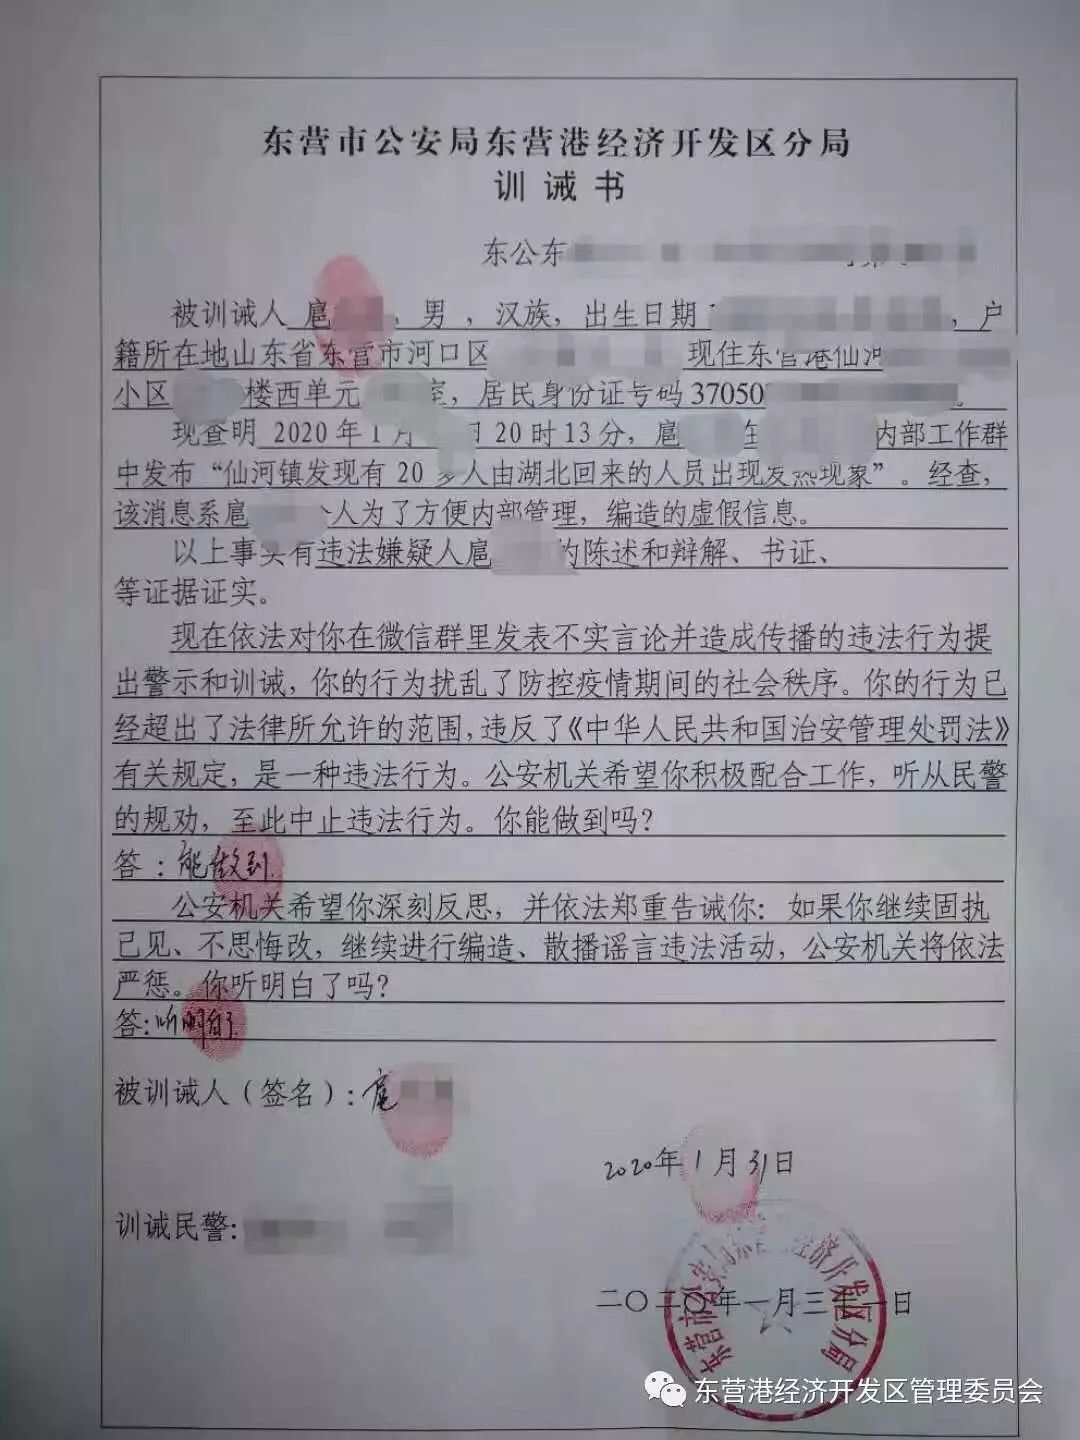 东营市公安局东营港经济开发区分局
训诫书
东公东
被训诫人 扈 ，男 ，汉族，出生日期 ，户
籍所在地山东省东营市河口区 现住东营港仙河
小区 楼西单元 室，居民身份证号码37050
现查明 2020年1月 日20时13分，扈 在 内部工作群
中发布“仙河镇发现有20多人由湖北回来的人员出现发热现象”。经查，
该消息系扈 个人为了方便内部管理，编造的虚假信息。
以上事实有违法嫌疑人扈 的陈述和辩解、书证、
等证据证实。
现在依法对你在微信群里发表不实言论并造成传播的违法行为提
出警示和训诫，你的行为扰乱了防控疫情期间的社会秩序。你的行为已
经超出了法律所允许的范围，违反了《中华人民共和国治安管理处罚法》
有关规定，是一种违法行为。公安机关希望你积极配合工作，听从民警
的规劝，至此中止违法行为。你能做到吗？
答：能做到.
公安机关希望你深刻反思，并依法郑重告诫你：如果你继续固执
己见、不思悔改，继续进行编造、散播谣言违法活动，公安机关将依法
严惩。你听明白了吗？
答：听明白了.
被训诫人（签名）：扈
2020年1月31日
训诫民警：
二〇二〇年一月三十一日
东营市公安局东 经济开发区分局
东营港经济开发区管理委员会